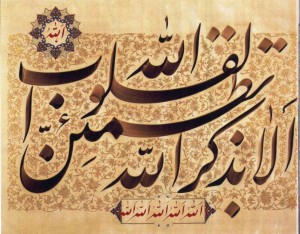 الله
ألا بذكر الله
تطمئن القلوب
الله الله الله الله الله